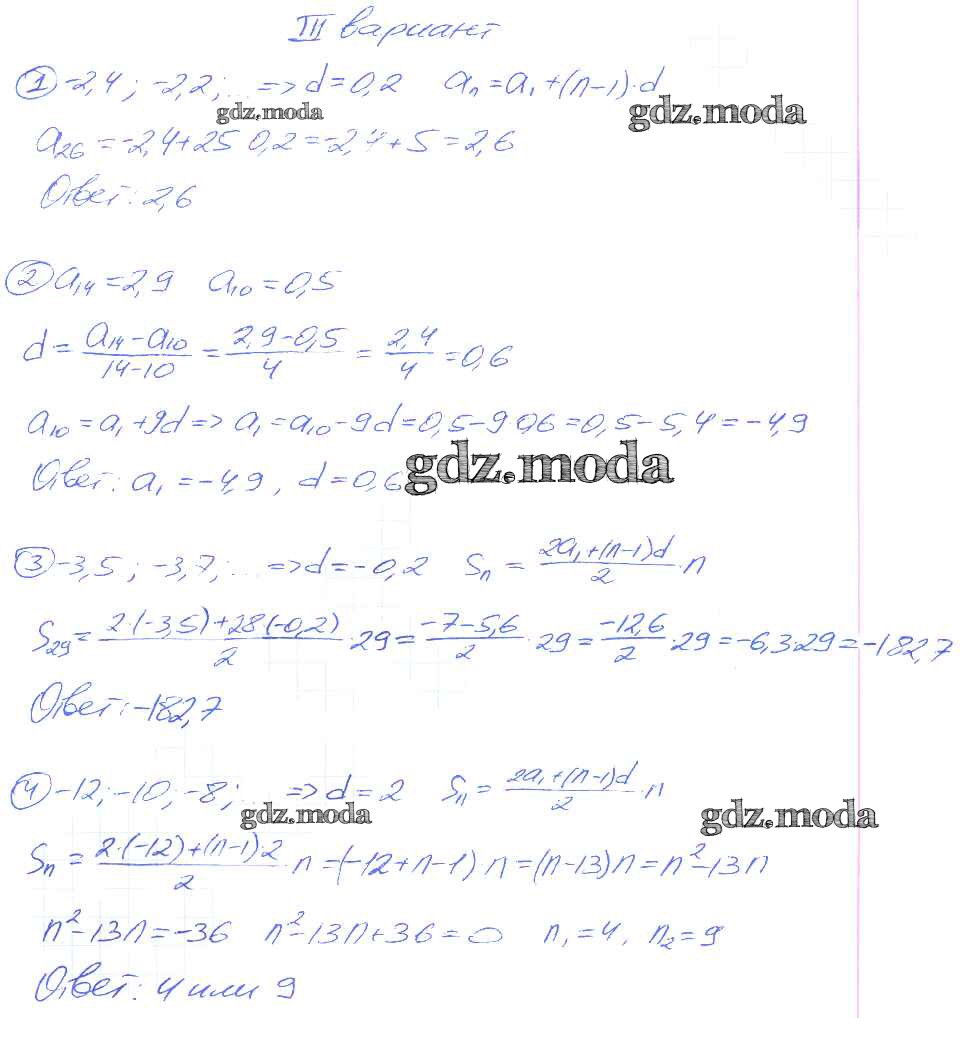 III вариант
① -2,4; -2,2; ... => d=0,2 aₙ=a₁+(n-1)·d
gdz.moda gdz.moda
a₂₆=-2,4+25 0,2=-2,4+5=2,6
Ответ: 2,6
② a₁₄=2,9 a₁₀=0,5
d = (a₁₄-a₁₀)/(14-10) = (2,9-0,5)/4 = 2,4/4 = 0,6
a₁₀=a₁+9d => a₁=a₁₀-9d=0,5-9 0,6=0,5-5,4=-4,9
Ответ: a₁=-4,9, d=0,6
gdz.moda
③ -3,5; -3,7; ... => d=-0,2 Sₙ = (2a₁+(n-1)d)/2 ·n
S₂₉ = (2·(-3,5)+28(-0,2))/2 ·29 = (-7-5,6)/2 ·29 = (-12,6)/2 ·29 = -6,3·29 = -182,7
Ответ: -182,7
④ -12; -10; -8; ... => d=2 Sₙ = (2a₁+(n-1)d)/2 ·n
gdz.moda gdz.moda
Sₙ = (2·(-12)+(n-1)·2)/2 ·n = (-12+n-1) n = (n-13)n = n²-13n
n²-13n=-36 n²-13n+36=0 n₁=4, n₂=9
Ответ: 4 или 9